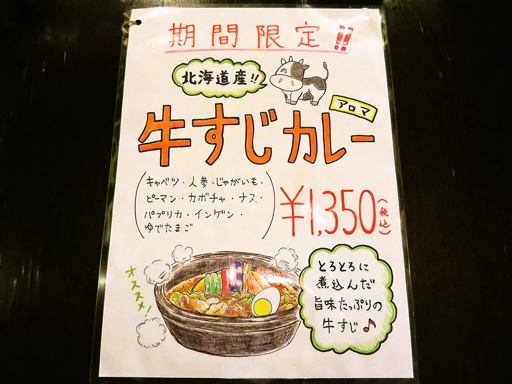 期間限定!!
北海道産!!
アロマ
牛すじカレー
(キャベツ・人参・じゃがいも・
ピーマン・カボチャ・ナス・
パプリカ・インゲン・
ゆでたまご)
¥1,350(税込)
オススメ!
とろとろに
煮込んだ
旨味たっぷりの
牛すじ♪